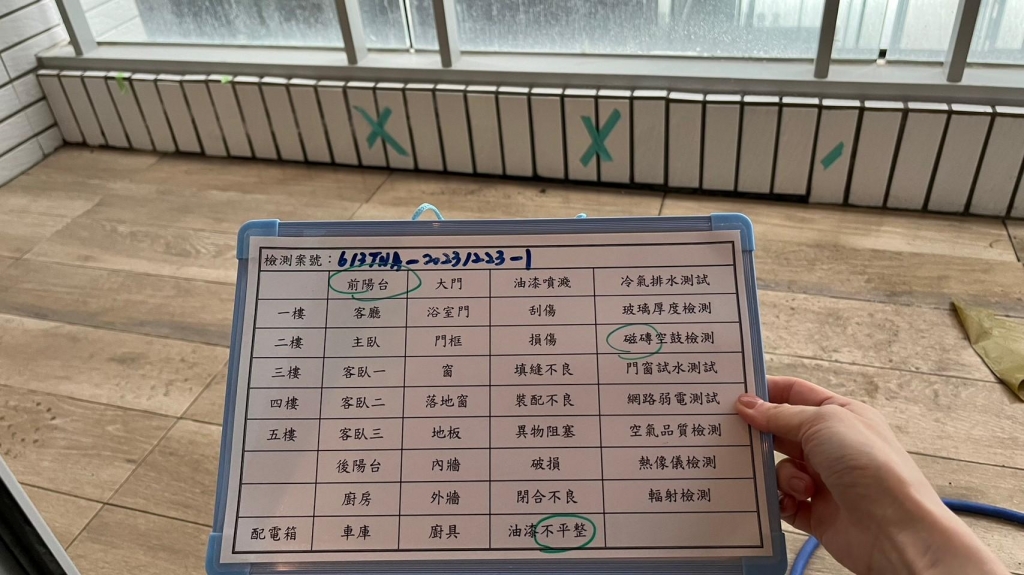 檢測案號：613THA-20231223-1
前陽台 大門 油漆噴濺 冷氣排水測試
一樓 客廳 浴室門 刮傷 玻璃厚度檢測
二樓 主臥 門框 損傷 磁磚空鼓檢測
三樓 客臥一 窗 填縫不良 門窗試水測試
四樓 客臥二 落地窗 裝配不良 網路弱電測試
五樓 客臥三 地板 異物阻塞 空氣品質檢測
後陽台 內牆 破損 熱像儀檢測
廚房 外牆 閉合不良 輻射檢測
配電箱 車庫 廚具 油漆不平整